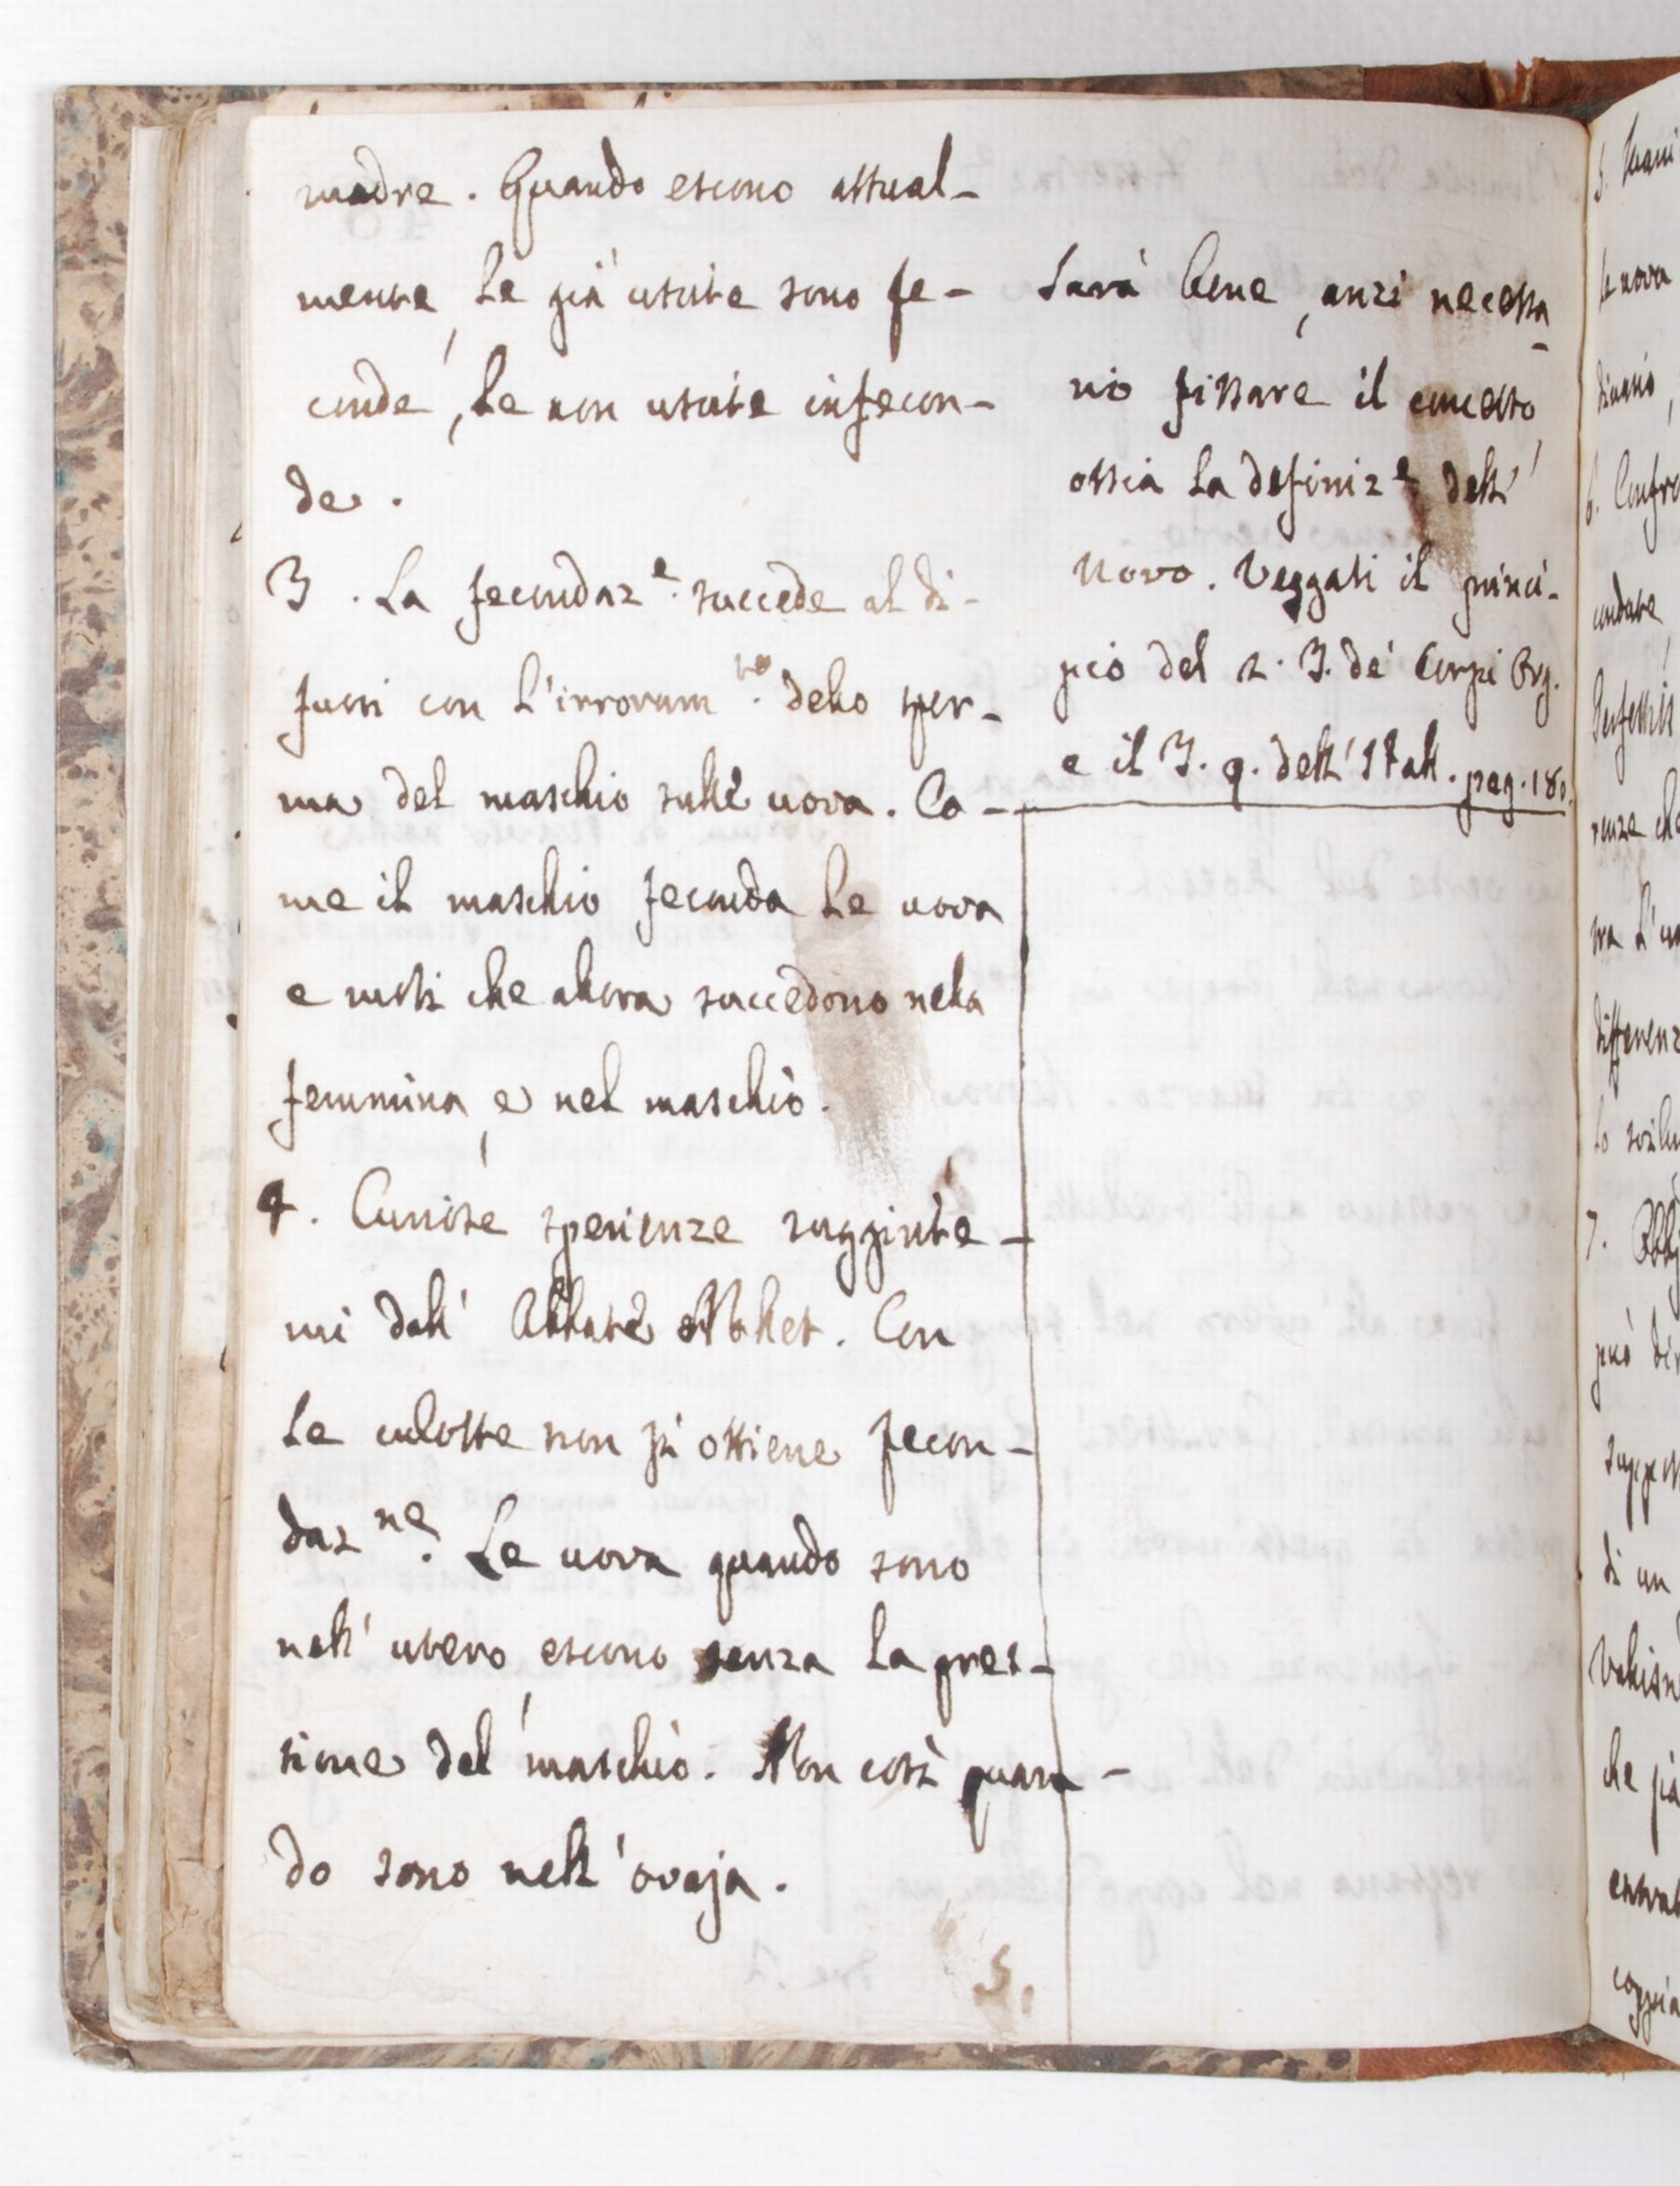 madre. Quando escono attual-
mente, le già uscite sono fe-
conde, le non uscite infecon-
de.
3. La fecondaz.e succede al di-
fuori con l'irroram.to dello sper-
ma del maschio sulle uova. Co-
me il maschio feconda le uova
e moti che allora succedono nella
femmina, e nel maschio.
4. Curiose sperienze suggerite-
mi dall' Abbate Nollet. Con
le culotte non si ottiene fecon-
daz.ne. Le uova quando sono
nell' utero, escono senza la pres-
sione del maschio. Non così quan-
do sono nell' ovaja.
5.
Sarà bene, anzi necessa-
rio fissare il concetto
ossia la definiz.e dell'
uovo. Veggasi il princi-
pio del 2. T. de' Corpi Org.
e il T. 9. dell' Hall. pag. 180.